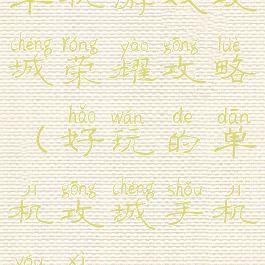 chéng róng yào gōng lüè
城荣耀攻略
hǎo wán de dān
（好玩的单
jī gōng chéng shǒu jī
机攻城手机
yóu xì